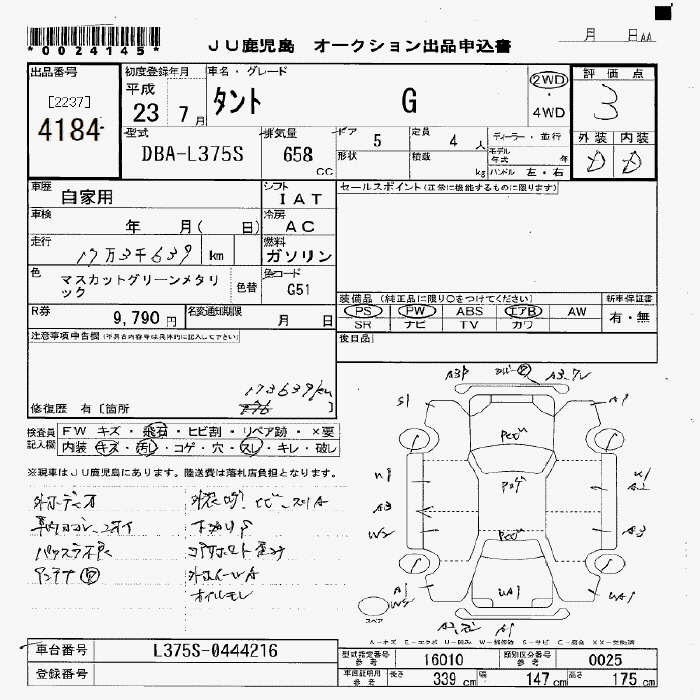 *0024145*
JU鹿児島 オークション出品申込書
月 日AA
出品番号
[2237]
4184
初度登録年月
平成
23 7月
車名・グレード
タント G
2WD
・
4WD
評価点
3
外装 内装
D D
型式
DBA-L375S
排気量
658
CC
ドア 5
定員 4 人
形状
積載 kg
ディーラー・並行
モデル年式 年
ハンドル 左・右
車歴
自家用
シフト
IAT
セールスポイント(正常に機能するものに限ります)
車検
年 月( 日)
冷房
AC
走行
17万3千639 km
燃料
ガソリン
色
マスカットグリーンメタリ
ック
色替
色コード
G51
装備品 (純正品に限り○をつけてください)
PS PW ABS エアB AW
SR ナビ TV カワ
新車保証書
有・無
R券
9,790 円
名変通知期限
月 日
後日品
注意事項申告欄(不具合内容等は具体的に記入して下さい)
173639km
修復歴 有[箇所 ]
検査員
記入欄
FW キズ・飛石・ヒビ割・リペア跡・×要
内装・キズ・汚レ・コゲ・穴・スレ・キレ・破レ
※現車はJU鹿児島にあります。陸送費は落札店負担となります。
アンテナ
外ホイールA
オイルモレ
A3P
A3
S1
A1
U1
A3
W2
A3
A1
W2
UA1
UA1
A1
スペア
A-キズ E-エクボ U-凹み W-補修跡 S-サビ C-腐食 XX-交換済
車台番号
L375S-0444216
登録番号
型式指定番号
参考
16010
類別区分番号
参考
0025
車両証明用
参考
長さ 339 cm
幅 147 cm
高さ 175 cm